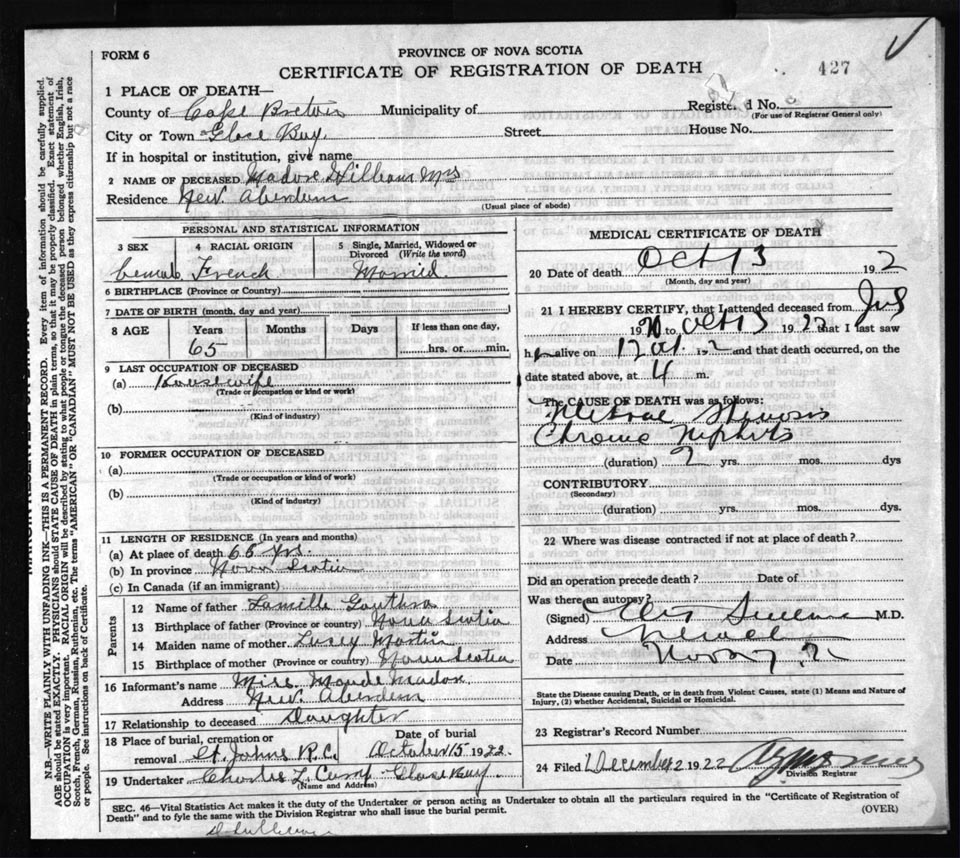 FORM 6
PROVINCE OF NOVA SCOTIA
CERTIFICATE OF REGISTRATION OF DEATH
427
1 PLACE OF DEATH—
County of Cape Breton Municipality of Registered No.
(For use of Registrar General only)
City or Town Glace Bay. Street House No.
If in hospital or institution, give name
2 NAME OF DECEASED Madore William Mrs
Residence New Aberdeen
(Usual place of abode)
PERSONAL AND STATISTICAL INFORMATION
3 SEX 4 RACIAL ORIGIN 5 Single, Married, Widowed or Divorced (Write the word)
French Married
6 BIRTHPLACE (Province or Country)
7 DATE OF BIRTH (month, day and year)
8 AGE Years Months Days If less than one day,
65 hrs. or min.
9 LAST OCCUPATION OF DECEASED
(a) Housewife
(Trade or occupation or kind of work)
(b)
(Kind of industry)
10 FORMER OCCUPATION OF DECEASED
(a)
(Trade or occupation or kind of work)
(b)
(Kind of industry)
11 LENGTH OF RESIDENCE (In years and months)
(a) At place of death 65 yrs.
(b) In province Nova Scotia
(c) In Canada (if an immigrant)
Parents
12 Name of father
13 Birthplace of father (Province or country) Nova Scotia
14 Maiden name of mother Lucy Martin
15 Birthplace of mother (Province or country) Nova Scotia
16 Informant's name Miss Maude Madore
Address New Aberdeen
17 Relationship to deceased Daughter
18 Place of burial, cremation or removal St. Johns R.C. Date of burial October 15 1922.
19 Undertaker Charles L. Curry Glace Bay
(Name and Address)
MEDICAL CERTIFICATE OF DEATH
20 Date of death Oct 13 192
(Month, day and year)
21 I HEREBY CERTIFY, that I attended deceased from
to Oct 13 1922 that I last saw
alive on and that death occurred, on the
date stated above, at 4 m.
The CAUSE OF DEATH was as follows:
Mitral Stenosis
Chronic Nephritis
(duration) 2 yrs. mos. dys
CONTRIBUTORY
(Secondary)
(duration) yrs. mos. dys.
22 Where was disease contracted if not at place of death?
Did an operation precede death? Date of
Was there an autopsy?
(Signed) M.D.
Address
Date
State the Disease causing Death, or in death from Violent Causes, state (1) Means and Nature of Injury, (2) whether Accidental, Suicidal or Homicidal.
23 Registrar's Record Number
24 Filed December 2 1922
Division Registrar
SEC. 46—Vital Statistics Act makes it the duty of the Undertaker or person acting as Undertaker to obtain all the particulars required in the "Certificate of Registration of
Death" and to fyle the same with the Division Registrar who shall issue the burial permit.
(OVER)
N.B.—WRITE PLAINLY WITH UNFADING INK—THIS IS A PERMANENT RECORD. Every item of information should be carefully supplied.
AGE should be stated EXACTLY. PHYSICIANS should STATE CAUSE OF DEATH in plain terms, so that it may be properly classified. Exact statement of
OCCUPATION is very important. RACIAL ORIGIN will be described by stating to what people or tongue the deceased person belonged whether English, Irish,
Scotch, French, German, Russian, Ruthenian, etc. The terms "AMERICAN" OR "CANADIAN" MUST NOT BE USED as they express citizenship but not a race
or people. See instructions on back of Certificate.